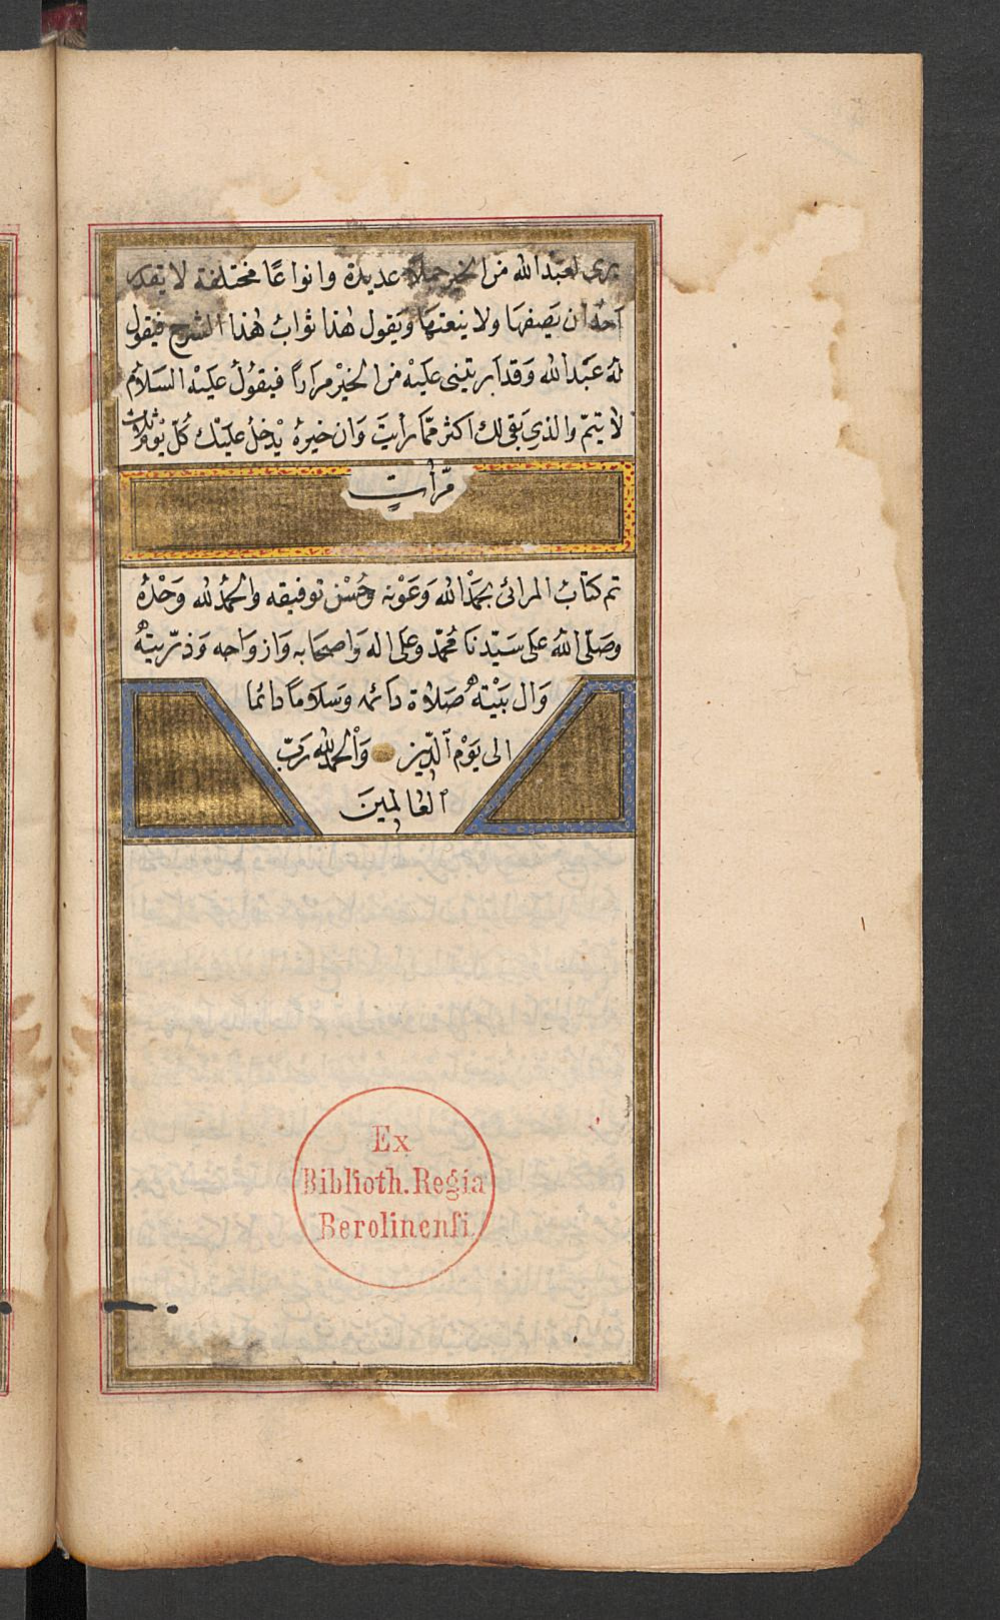 يرى لعبد الله من الخير جملا عديدة وانواعًا مختلفة لا يقدر
احدٌ ان يَصفهَا ولا ينعتهَا وَيَقول هٰذا ثوابُ هٰذا الشرح فيقول
لهُ عَبْد الله وَقد اَريتنى عليْه من الخيْر مرَارًا فيقوُل عليْه السَلام
لا يَتمّ والذى بَقى لك اكثر ممّا رأيت وَان خيرهُ يْدخلُ عليْك كُلّ يَوْم ثلاث
مرّأت
تم كتابُ المرائى بحَمْد الله وَعَوْنه وحُسْن توفيقه والحمْد لله وَحْدهُ
وصَلّى اللهُ على سَيّدنَا محُمّد وعلى اله وَاصحَابه وَازوَاجه وَذرّيتهُ
وَال بَيْتهُ صَلاة دائمه وَسَلامًا دائما
الى يَوْم اَلدّين وَالْحمد لله رَبّ
اَلعٰالمينَ
Ex
Biblioth. Regia
Berolinensi